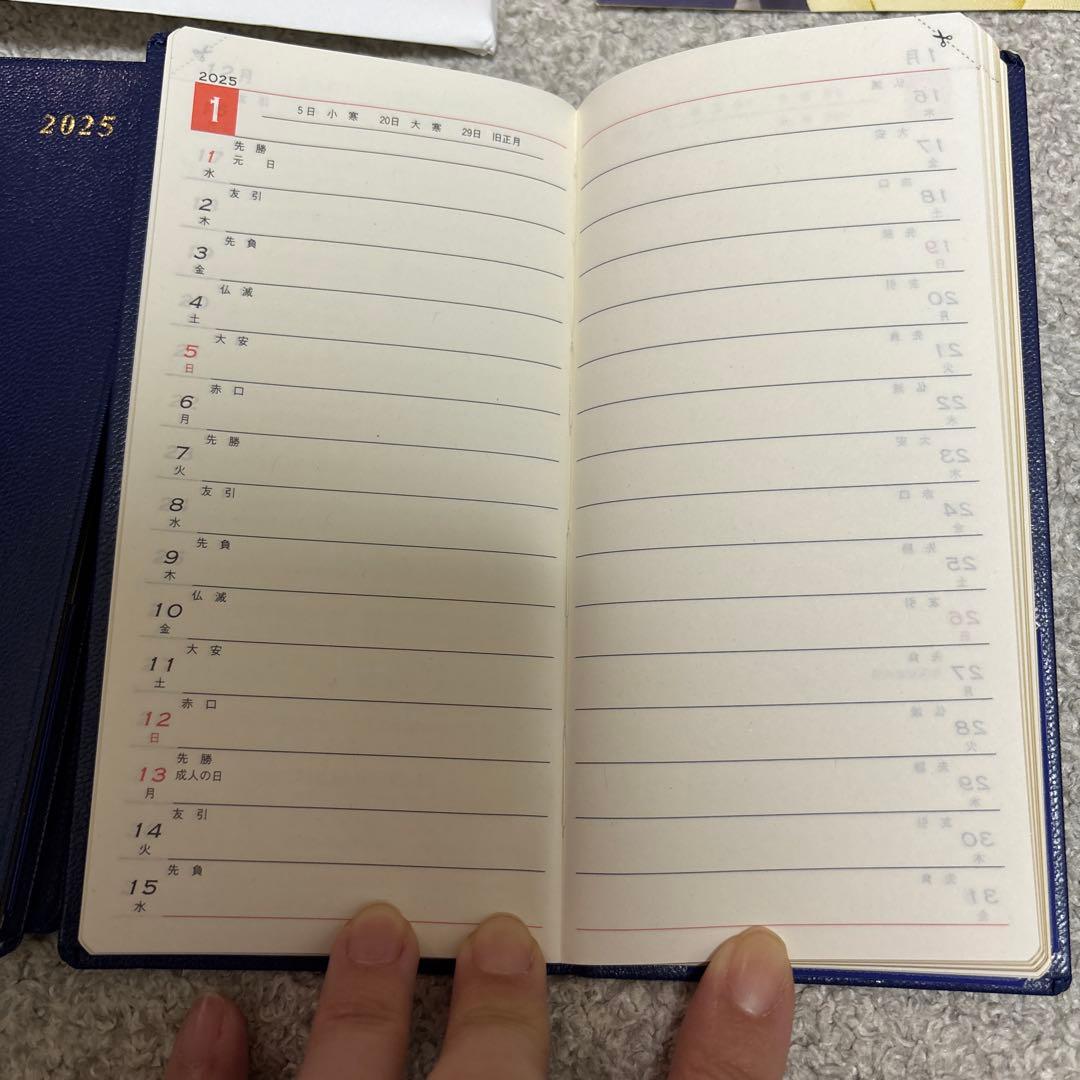 2025
2025
1
5日 小寒 20日 大寒 29日 旧正月
1 水 先勝 元日
2 木 友引
3 金 先負
4 土 仏滅
5 日 大安
6 月 赤口
7 火 先勝
8 水 友引
9 木 先負
10 金 仏滅
11 土 大安
12 日 赤口
13 月 先勝 成人の日
14 火 友引
15 水 先負